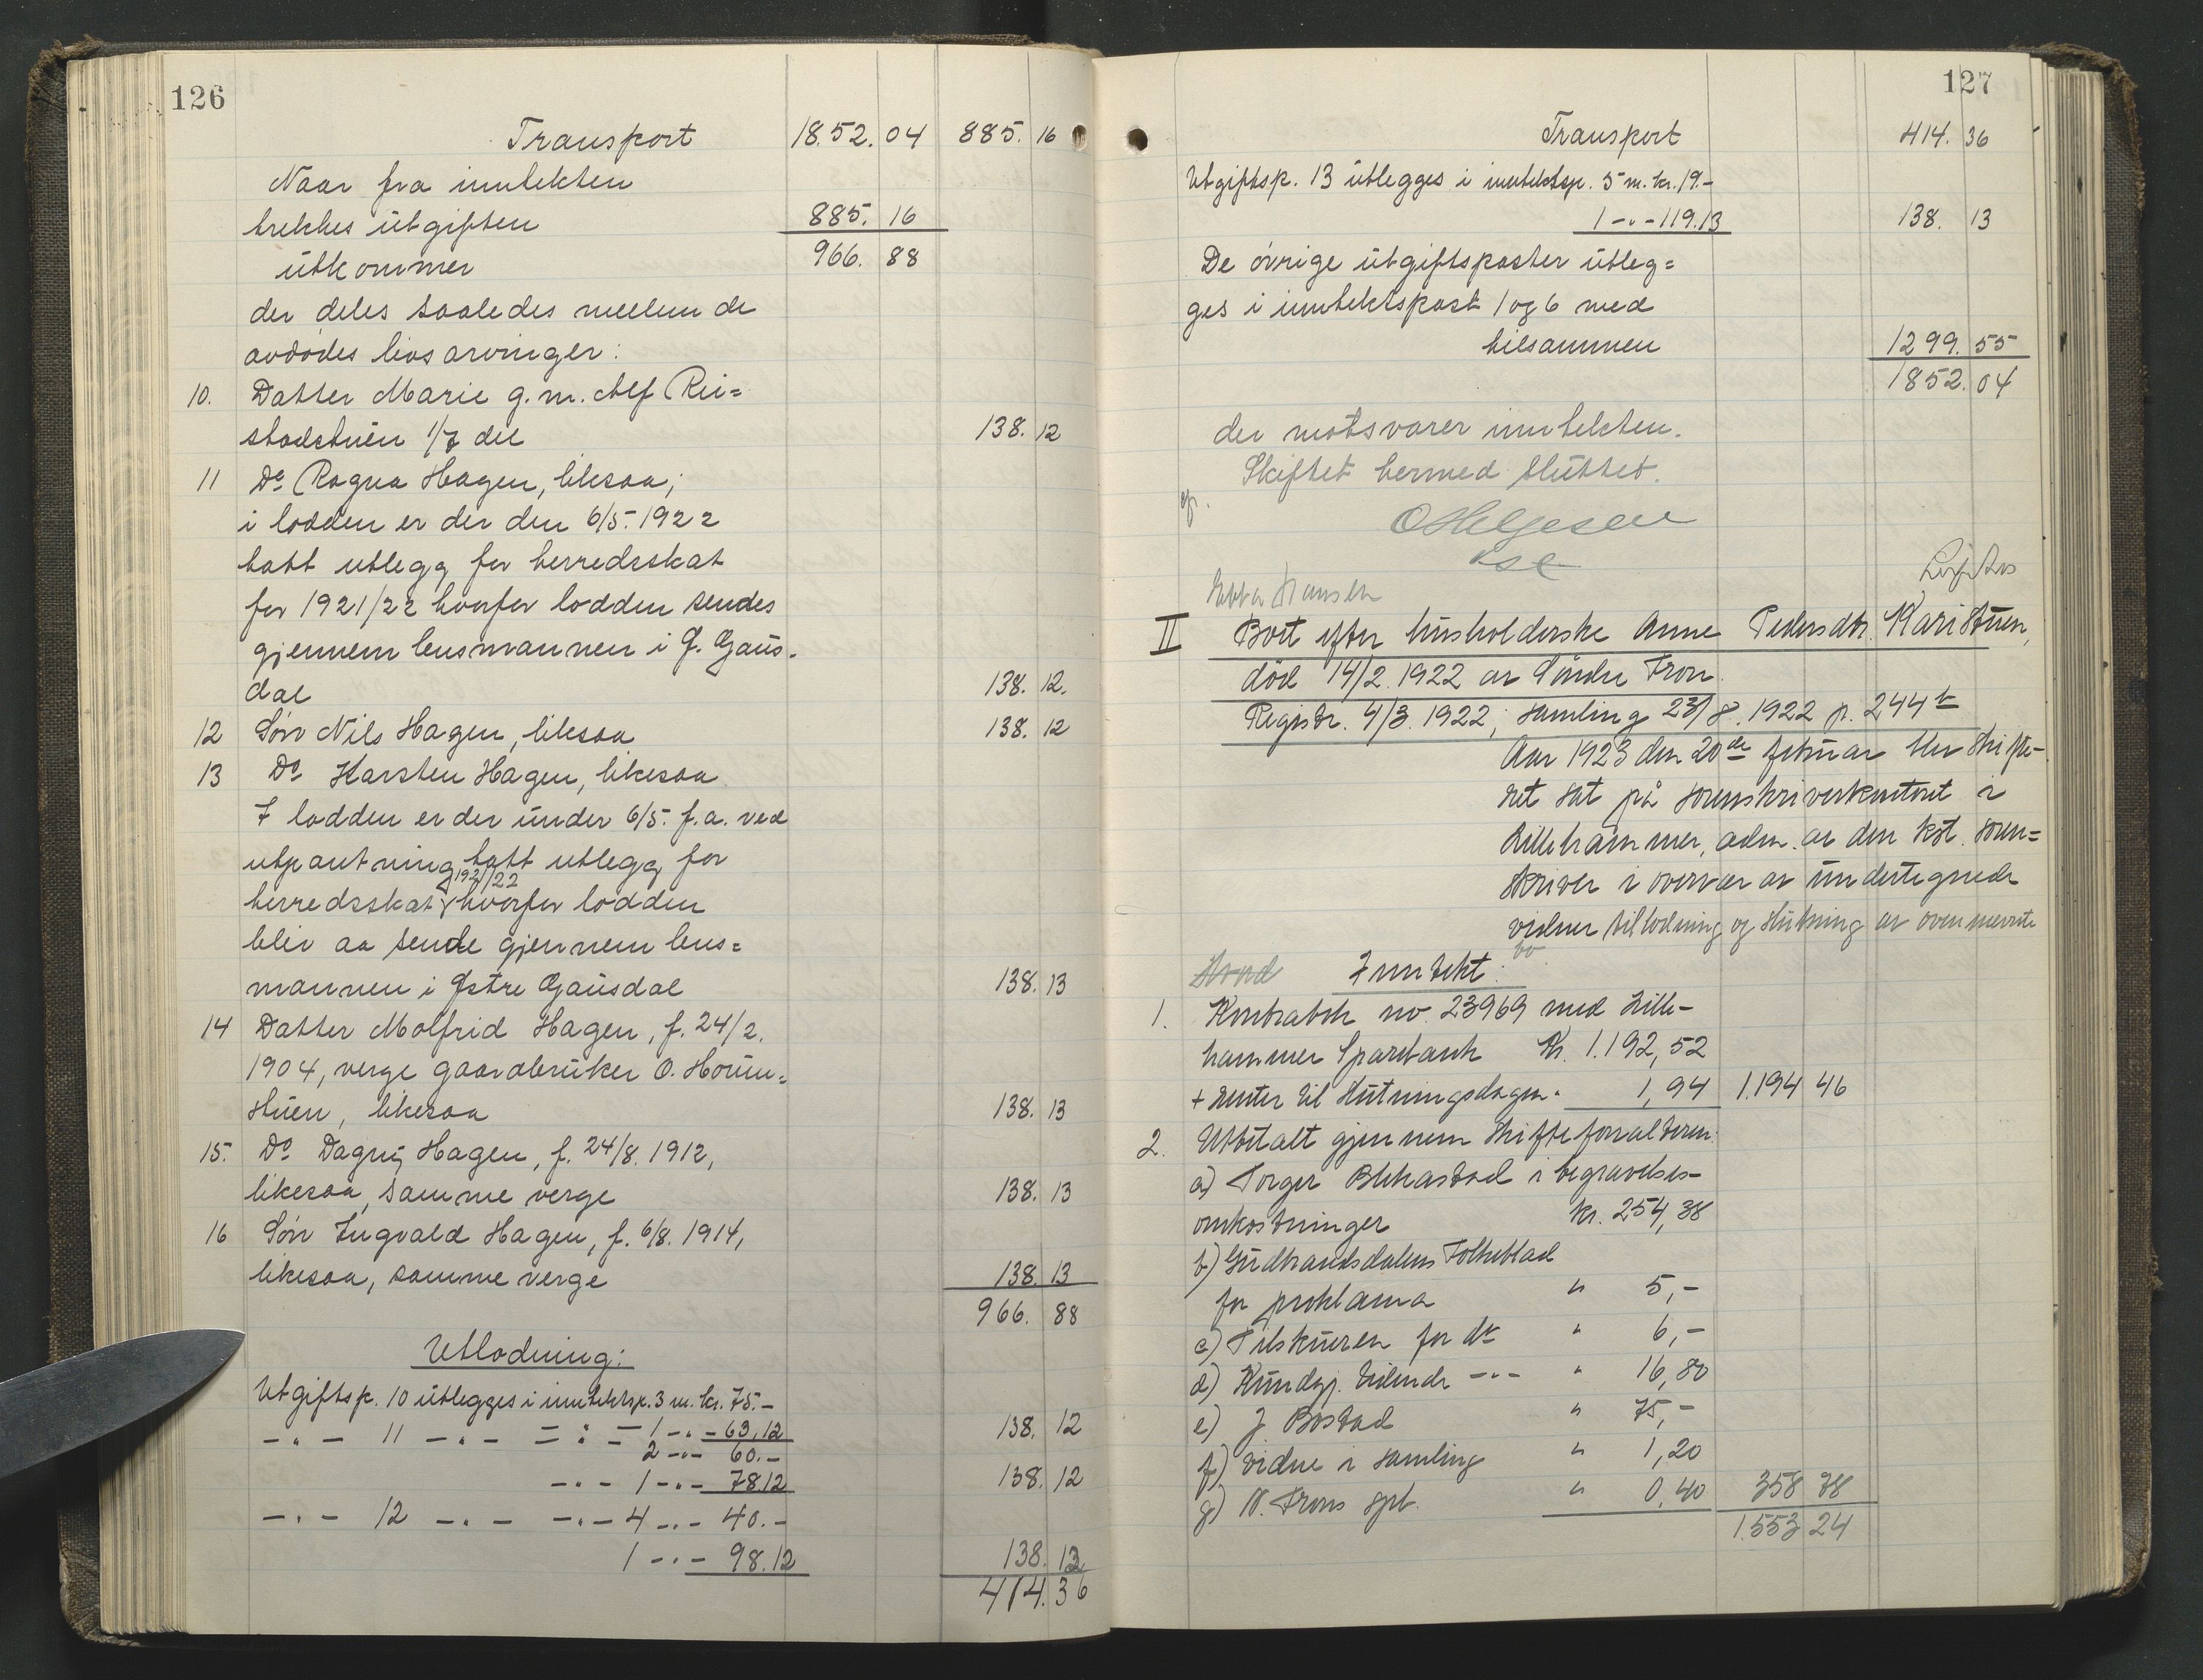 126
Transport 1852. 04 885. 16
Naar fra inntekten
trekkes utgiften 885. 16
utkommer 966. 88
der deles saaledes mellem de
avdødes livsarvinger:
10. Datter Marie g. m. Alf Rei=
stadstuen 1/7 del 138. 12
11 Do Ragna Hagen, likesaa;
i lodden er der den 6/5. 1922
tatt utlegg for herredsskat
for 1921/22 hvorfor lodden sendes
gjennem lensmannen i Ø. Gaus-
dal 138. 12.
12 Søn Nils Hagen, likesaa 138. 12
13 Do Karsten Hagen, likesaa.
I lodden er der under 6/5. f.a. ved
utpantning tatt utlegg for
herredsskat 1921/22 hvorfor lodden
blir aa sende gjennem lens=
mannen i Østre Gausdal 138. 13
14 Datter Molfrid Hagen, f. 24/2.
1904, verge gaardbruker O. Horun=
stuen, likesaa 138. 13
15. Do Dagny Hagen, f. 24/8. 1912,
likesaa, samme verge 138. 13
16 Søn Ingvald Hagen, f. 6/8. 1914,
likesaa, samme verge 138. 13
966. 88
Utlodning:
Utgiftsp. 10 utlegges i inntektsp. 3 m. kr. 75.-
1 -"- 63.12 138. 12
-"- 11 -"- -"- 2 -"- 60.-
-"- 1 -"- 78.12 138. 12
-"- 12 -"- -"- 4 -"- 40.-
1 -"- 98.12 138. 12
414. 36
127
Transport 414. 36
Utgiftsp. 13 utlegges i inntektsp. 5 m. kr. 19.-
1 -"- 119.13 138. 13
De øvrige utgiftsposter utleg=
ges i inntektspost 1 og 6 med
tilsammen 1299. 55
1852. 04
der motsvarer inntekten.
Skiftet hermed sluttet.
O Helgesen
Ebba Hansen
II Boet efter husholderske Anne Pedersdtr. Karistuen,
død 14/2. 1922 av Søndre Fron.
Registr. 4/3. 1922; samling 23/8. 1922 p. 244 b
Aar 1923 den 20de februar blev skifte-
ret sat på sorenskriverkontoret i
Lillehammer, adm. av den kst. soren=
skriver i overvær av undertegnede
vidner til lodning og slutning av ovennevnte
bo.
Inntekt:
1. Kontrabok no. 23969 med Lille-
hammer Sparebank Kr. 1.192,52
+ renter til slutningsdagen. 1,94 1.194 46
2. Utbetalt gjennem skifteforvalteren:
a) Torger Blekastad i begravelses-
omkostninger kr. 254,38
b) Gudbrandsdalens Folkeblad
for proklama " 5,-
c) Tilskueren for do " 6,-
d) Kundgj. tidende -"- " 16,80
e) J Bostad " 75,-
f) Vidne i samling " 1,20
g) N. Frons spb. " 0,40 358 78
1.553 24